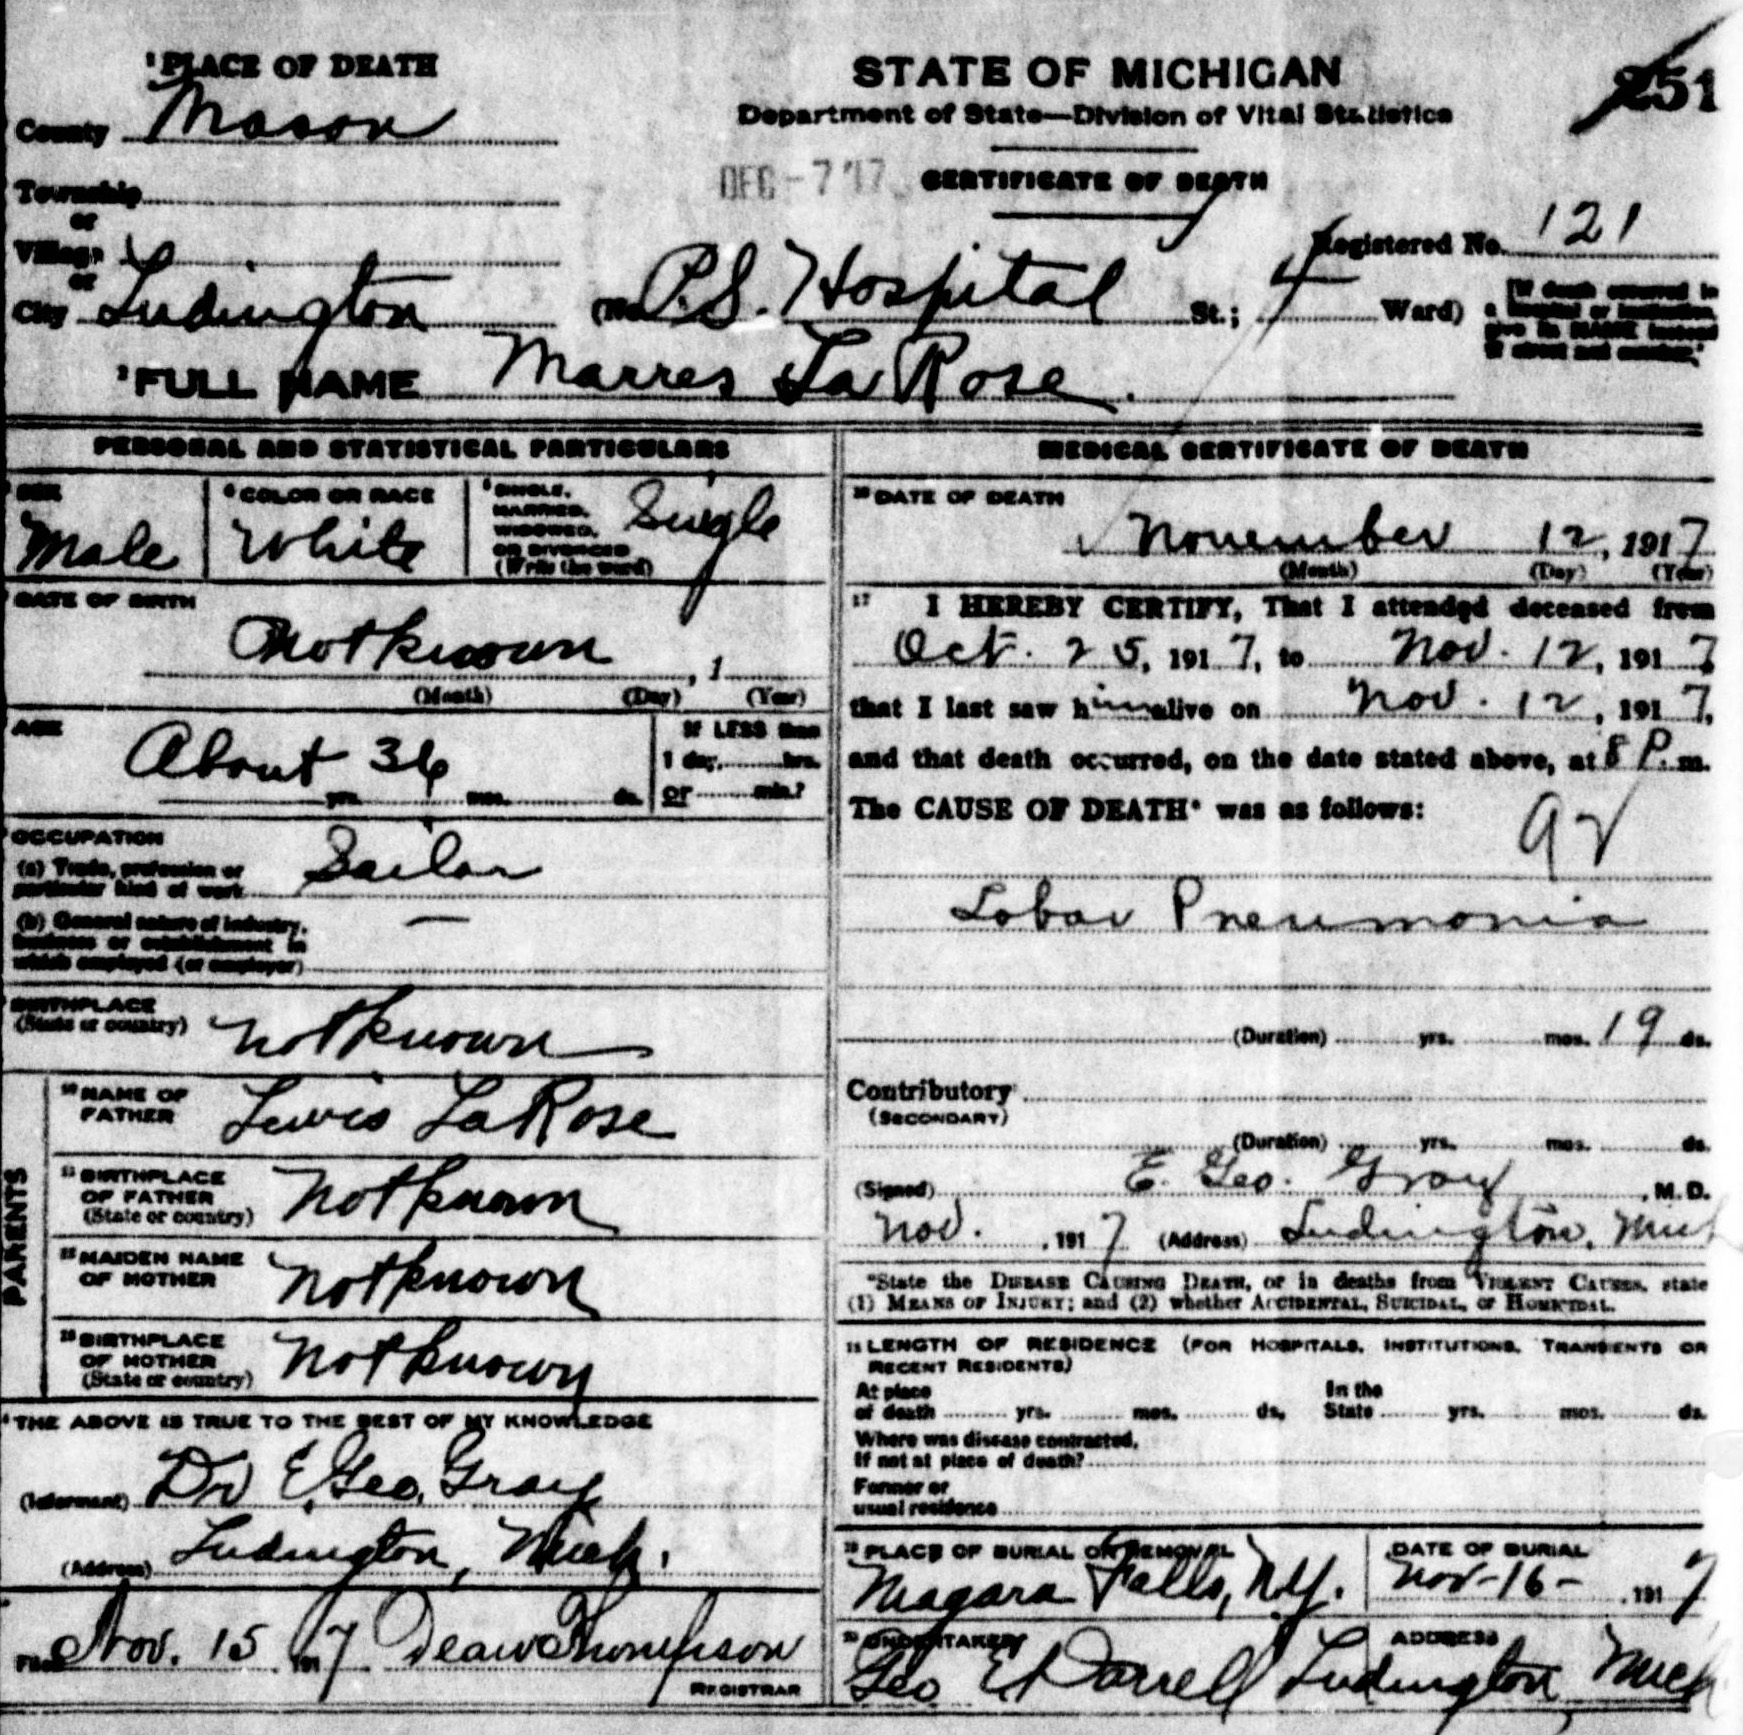 1 PLACE OF DEATH
County Mason
Township
or
Village
or
City Ludington (No. P.S. Hospital St.; 4 Ward)
STATE OF MICHIGAN
Department of State—Division of Vital Statistics
DEC - 7 '17 CERTIFICATE OF DEATH
251
Registered No. 121
[If death occurred in
a hospital or institution,
give its NAME instead
of street and number.]
2 FULL NAME Marres La Rose
PERSONAL AND STATISTICAL PARTICULARS
SEX
Male
4 COLOR OR RACE
White
5 SINGLE,
MARRIED,
WIDOWED,
OR DIVORCED
(Write the word)
Single
DATE OF BIRTH
Not known , 1
(Month) (Day) (Year)
AGE
About 36
yrs. mos. ds.
If LESS than
1 day, hrs.
or min.?
OCCUPATION
(a) Trade, profession or
particular kind of work Sailor
(b) General nature of industry,
business or establishment in
which employed (or employer) —
BIRTHPLACE
(State or country) Not known
PARENTS
10 NAME OF
FATHER Lewis LaRose
11 BIRTHPLACE
OF FATHER
(State or country) Not known
12 MAIDEN NAME
OF MOTHER Not known
13 BIRTHPLACE
OF MOTHER
(State or country) Not known
THE ABOVE IS TRUE TO THE BEST OF MY KNOWLEDGE
(Informant) Dr E. Geo. Gray
(Address) Ludington, Mich.
Filed Nov. 15 1917 Thompson
REGISTRAR
MEDICAL CERTIFICATE OF DEATH
16 DATE OF DEATH
November 12, 1917
(Month) (Day) (Year)
17 I HEREBY CERTIFY, That I attended deceased from
Oct. 25, 1917, to Nov. 12, 1917
that I last saw him alive on Nov. 12, 1917,
and that death occurred, on the date stated above, at 8 P. m.
The CAUSE OF DEATH* was as follows:
92
Lobar Pneumonia
(Duration) yrs. mos. 19 ds.
Contributory
(SECONDARY)
(Duration) yrs. mos. ds.
(Signed) E. Geo. Gray , M. D.
Nov. , 1917 (Address) Ludington, Mich
*State the DISEASE CAUSING DEATH, or in deaths from VIOLENT CAUSES, state
(1) MEANS OF INJURY; and (2) whether ACCIDENTAL, SUICIDAL, or HOMICIDAL.
18 LENGTH OF RESIDENCE (FOR HOSPITALS, INSTITUTIONS, TRANSIENTS OR
RECENT RESIDENTS)
At place In the
of death yrs. mos. ds. State yrs. mos. ds.
Where was disease contracted,
If not at place of death?
Former or
usual residence
19 PLACE OF BURIAL OR REMOVAL
Niagara Falls, N.Y.
DATE OF BURIAL
Nov-16- , 1917
20 UNDERTAKER
Geo E Darrell
ADDRESS
Ludington, Mich